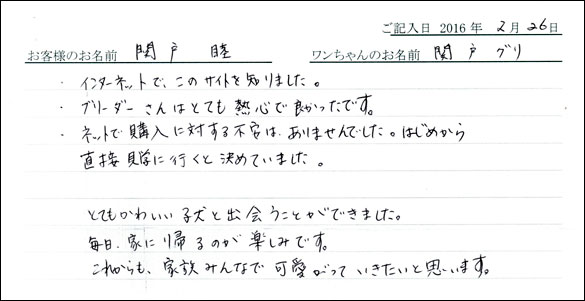 ご記入日 2016 年 2月 26日
お客様のお名前 関戸 睦 ワンちゃんのお名前 関戸 グリ
・ インターネットで、このサイトを知りました。
・ ブリーダーさんはとても熱心で良かったです。
・ ネットで購入に対する不安は、ありませんでした。はじめから
直接見学に行くと決めていました。
とてもかわいい子犬と出会うことができました。
毎日、家に帰るのが楽しみです。
これからも、家族みんなで可愛がっていきたいと思います。